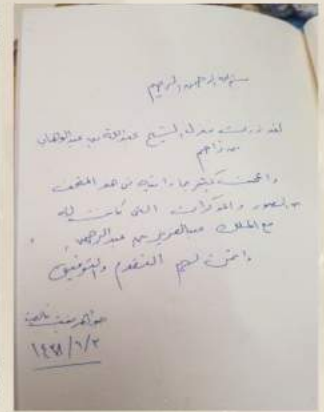 بسم الله الرحمن الرحيم
لقد زرت منزل الشيخ عبدالله بن عبدالوهاب
بن زاحم
وأعجبت كثير بما رأيته من هذا المتحف
من الصور والمذكرات التي كانت له
مع الملك عبدالعزيز بن عبدالرحمن
وأتمنى لهم التقدم والتوفيق
جواهر بنت
١٤٣٨/١/٢